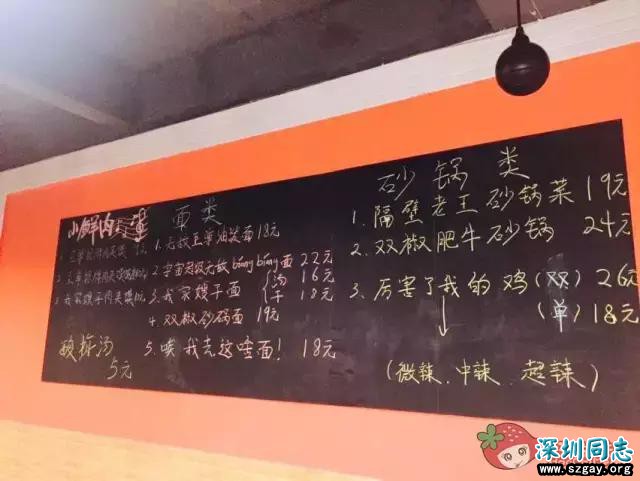 小鲜肉
酸梅汤
5元
面类
1. 无敌三掌油泼面 18元
2. 宇宙超级无敌biángbiáng面 22元
3. 我家嫂子面 {汤 16元
干 18元
4. 双椒砂锅面 19元
5. 唉我去这啥面! 18元
砂锅类
1. 隔壁老王砂锅菜 19元
2. 双椒肥牛砂锅 24元
3. 厉害了我的鸡 (双) 26元
(单) 18元
(微辣、中辣、超辣)
深圳同志
www.szgay.org